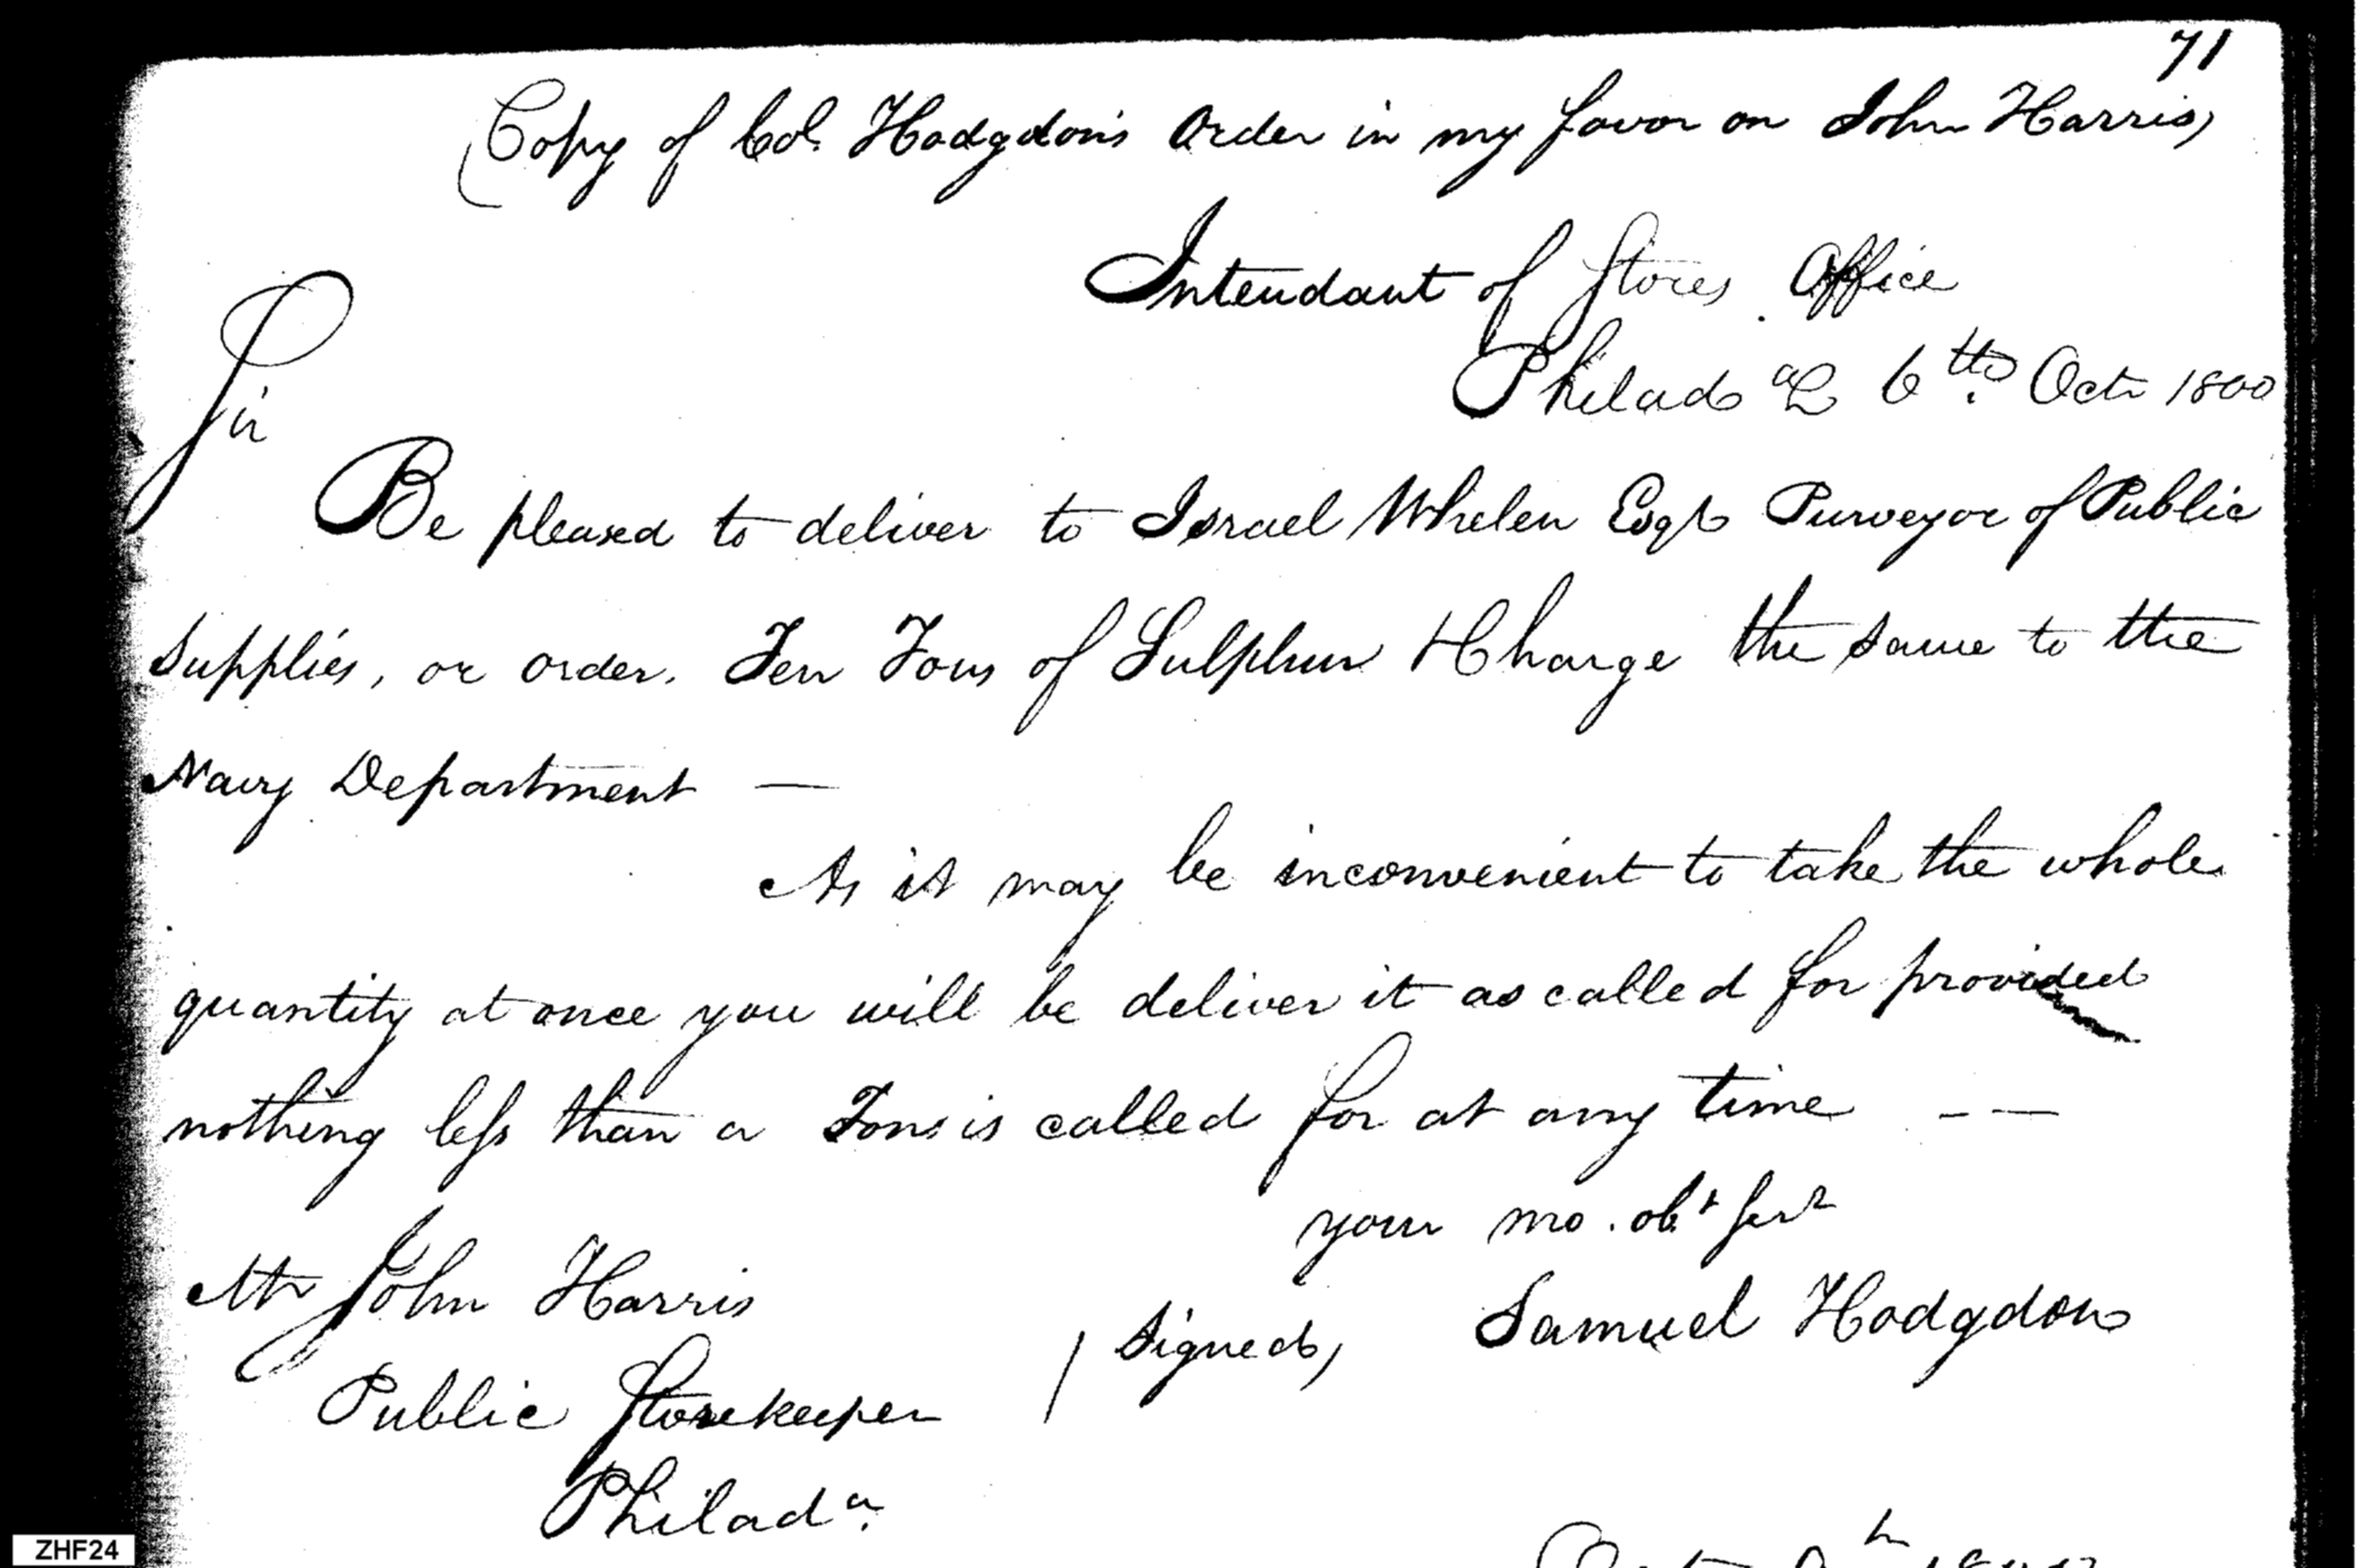 71
(Copy of Col. Hodgdon's Order in my favor on John Harris)
Intendant of Stores Office
Philada 6th Octr 1800
Sir
Be pleased to deliver to Israel Whelen Esqr Purveyor of Public
Supplies, or order. Ten Tons of Sulphur & Charge the same to the
Navy Department —
As it may be inconvenient to take the whole
quantity at once you will be deliver it as called for provided
nothing less than a Tons is called for at any time — —
your mo. obt Servt
Mr John Harris
/ Signed, Samuel Hodgdon
Public Storekeeper
Philada.
ZHF24